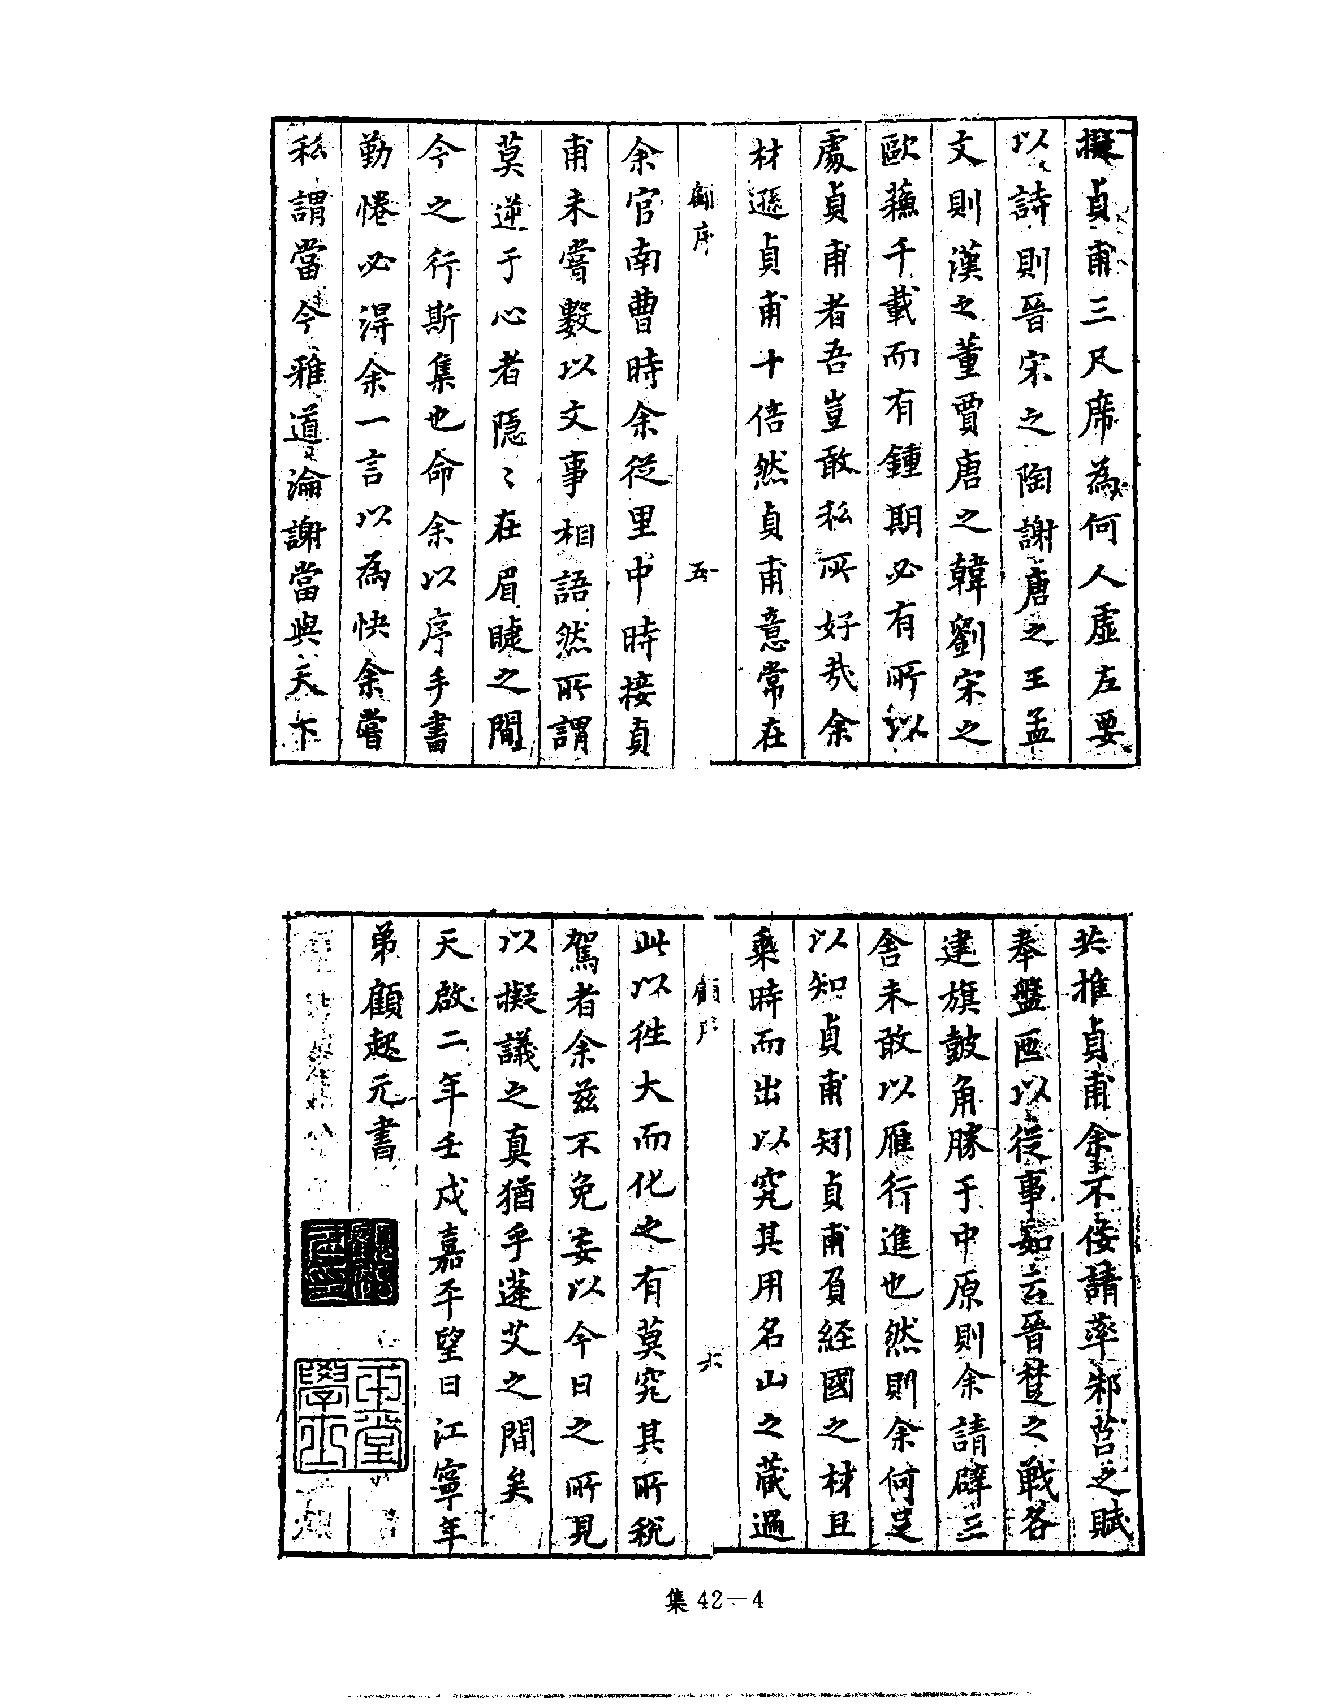 擬貞甫三尺席為何人虛左要
以詩則晉宋之陶謝唐之王孟
文則漢之董賈唐之韓劉宋之
歐蘓千載而有鍾期必有所以
處貞甫者吾豈敢私所好哉余
材遜貞甫十倍然貞甫意常在
顧序
五
余官南曹時余從里中時接貞
甫未嘗數以文事相語然所謂
莫逆于心者隠〻在眉睫之間
今之行斯集也命余以序手書
勤惓必淂余一言以為快余嘗
私謂當今雅道淪謝當與天下
共推貞甫余不佞請率邾莒之賦
奉盤匜以從事如云晉楚之戰各
建旗鼓角勝于中原則余請辟三
舍未敢以雁行進也然則余何足
以知貞甫矧貞甫負經國之材且
乘時而出以究其用名山之蔵過
顧序
六
此以徃大而化之有莫究其所稅
駕者余兹不免妄以今日之所見
以擬議之真猶乎蓬艾之間矣
天啟二年壬戌嘉平望日江寧年
弟顧起元書
玉堂學士
集42－4